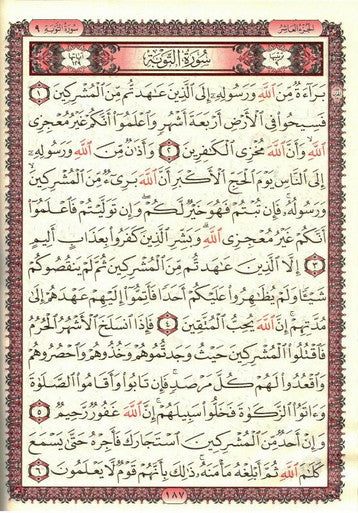 الجزء العاشر سورة التوبة ٩
ترتيبها ٩ سُورَةُ التَّوْبَةِ آياتها ١٢٩
بَرَآءَةٌ مِّنَ ٱللَّهِ وَرَسُولِهِۦٓ إِلَى ٱلَّذِينَ عَٰهَدتُّم مِّنَ ٱلْمُشْرِكِينَ ١
فَسِيحُوا۟ فِى ٱلْأَرْضِ أَرْبَعَةَ أَشْهُرٍ وَٱعْلَمُوٓا۟ أَنَّكُمْ غَيْرُ مُعْجِزِى
ٱللَّهِ وَأَنَّ ٱللَّهَ مُخْزِى ٱلْكَٰفِرِينَ ٢ وَأَذَٰنٌ مِّنَ ٱللَّهِ وَرَسُولِهِۦٓ
إِلَى ٱلنَّاسِ يَوْمَ ٱلْحَجِّ ٱلْأَكْبَرِ أَنَّ ٱللَّهَ بَرِىٓءٌ مِّنَ ٱلْمُشْرِكِينَ
وَرَسُولُهُۥ فَإِن تُبْتُمْ فَهُوَ خَيْرٌ لَّكُمْ وَإِن تَوَلَّيْتُمْ فَٱعْلَمُوٓا۟
أَنَّكُمْ غَيْرُ مُعْجِزِى ٱللَّهِ وَبَشِّرِ ٱلَّذِينَ كَفَرُوا۟ بِعَذَابٍ أَلِيمٍ
٣ إِلَّا ٱلَّذِينَ عَٰهَدتُّم مِّنَ ٱلْمُشْرِكِينَ ثُمَّ لَمْ يَنقُصُوكُمْ
شَيْـًٔا وَلَمْ يُظَٰهِرُوا۟ عَلَيْكُمْ أَحَدًا فَأَتِمُّوٓا۟ إِلَيْهِمْ عَهْدَهُمْ إِلَىٰ
مُدَّتِهِمْ إِنَّ ٱللَّهَ يُحِبُّ ٱلْمُتَّقِينَ ٤ فَإِذَا ٱنسَلَخَ ٱلْأَشْهُرُ ٱلْحُرُمُ
فَٱقْتُلُوا۟ ٱلْمُشْرِكِينَ حَيْثُ وَجَدتُّمُوهُمْ وَخُذُوهُمْ وَٱحْصُرُوهُمْ
وَٱقْعُدُوا۟ لَهُمْ كُلَّ مَرْصَدٍ فَإِن تَابُوا۟ وَأَقَامُوا۟ ٱلصَّلَوٰةَ
وَءَاتَوُا۟ ٱلزَّكَوٰةَ فَخَلُّوا۟ سَبِيلَهُمْ إِنَّ ٱللَّهَ غَفُورٌ رَّحِيمٌ ٥
وَإِنْ أَحَدٌ مِّنَ ٱلْمُشْرِكِينَ ٱسْتَجَارَكَ فَأَجِرْهُ حَتَّىٰ يَسْمَعَ
كَلَٰمَ ٱللَّهِ ثُمَّ أَبْلِغْهُ مَأْمَنَهُۥ ذَٰلِكَ بِأَنَّهُمْ قَوْمٌ لَّا يَعْلَمُونَ ٦
١٨٧